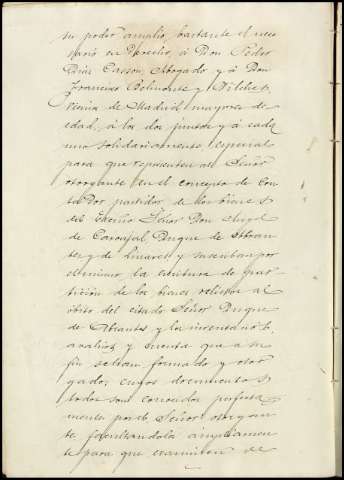 su poder amplio, bastante el nece
sario en Derecho, á Don Pedro
Diaz Casson, Abogado y á Don
Francisco Belmonte y Vilches,
vecinos de Madrid mayores de
edad, á los dos juntos y á cada
uno solidariamente, especial
para que representen al Señor
otorgante en el concepto de Con
tador partidor de los bienes
del Excmo Señor Don Angel
de Carvajal Duque de Abran
tes y de Linares y suscriban por
el mismo la escritura de par-
tición de los bienes relictos al
óbito del citado Señor Duque
de Abrantes y los inventarios,
avaluos y cuenta que á tal
fin se han formado y otor
gado, cuyos documentos
todos son conocidos perfecta
mente por el Señor otorgan
te facultandolos ampliamen
te para que examinen de